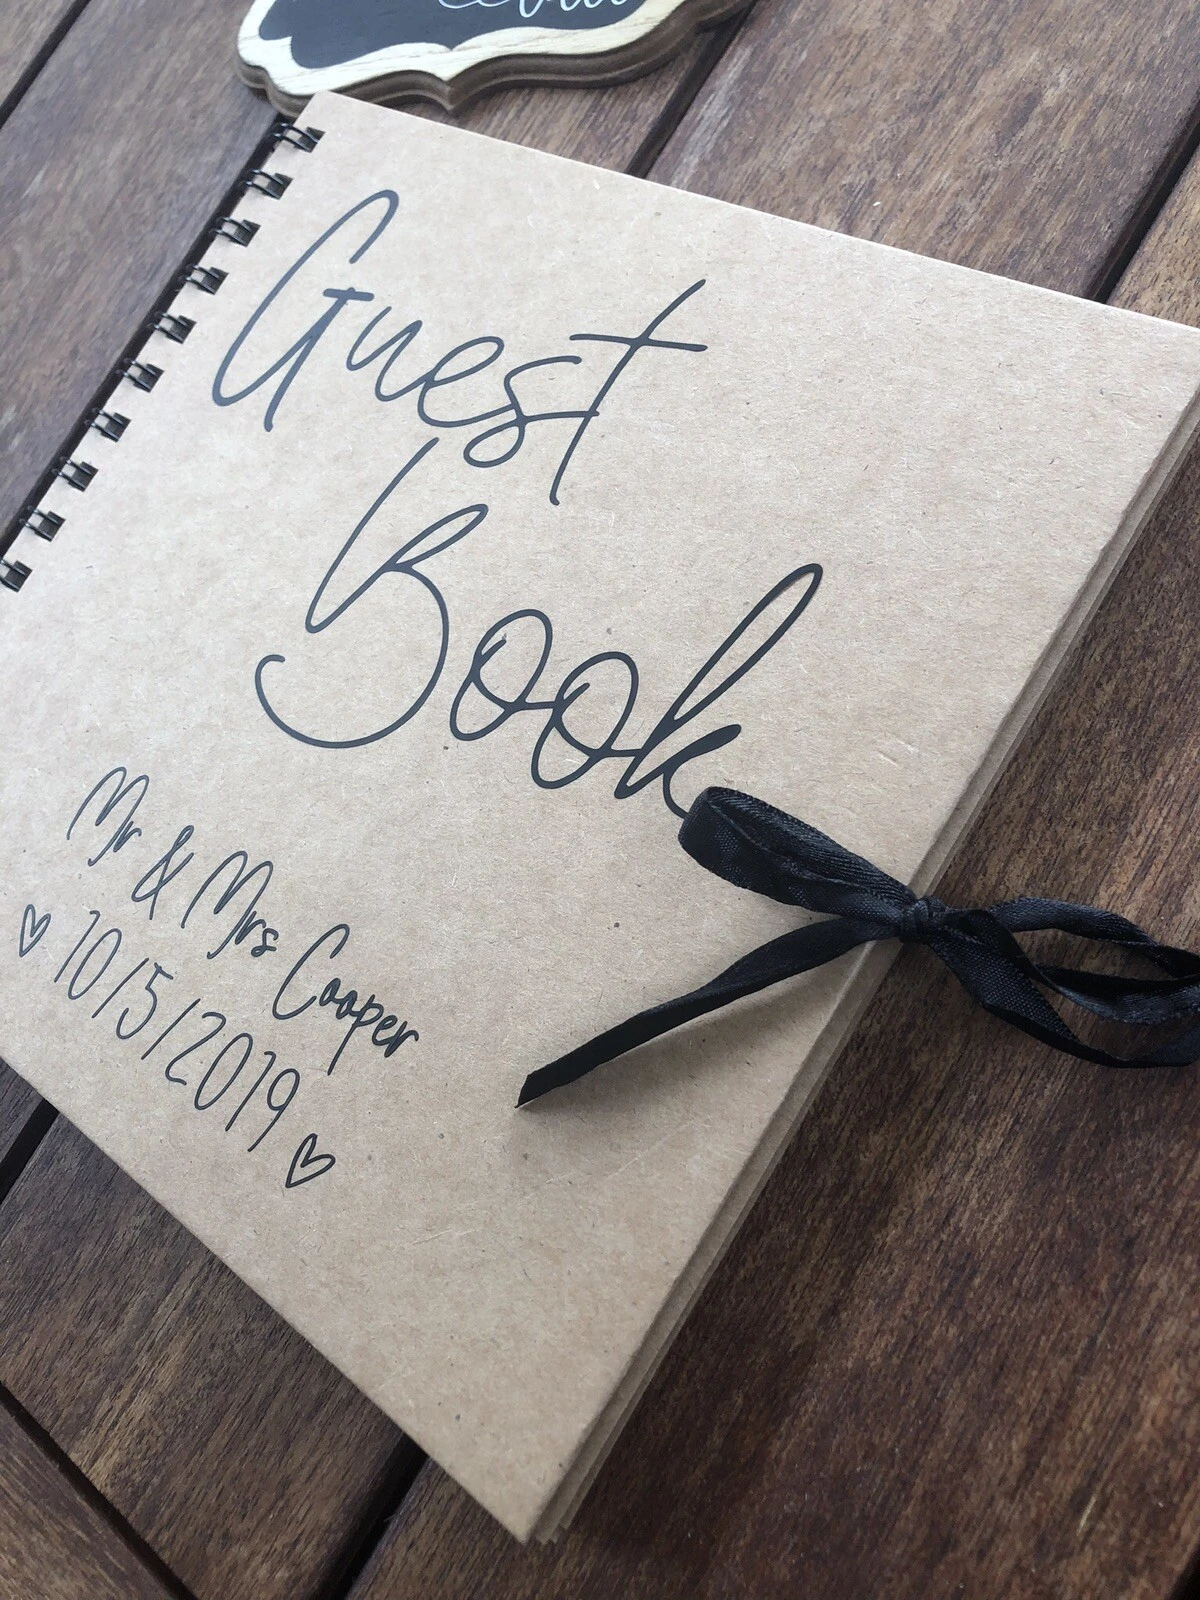 Guest
Book
Mr & Mrs Cooper
♡ 10/5/2019 ♡